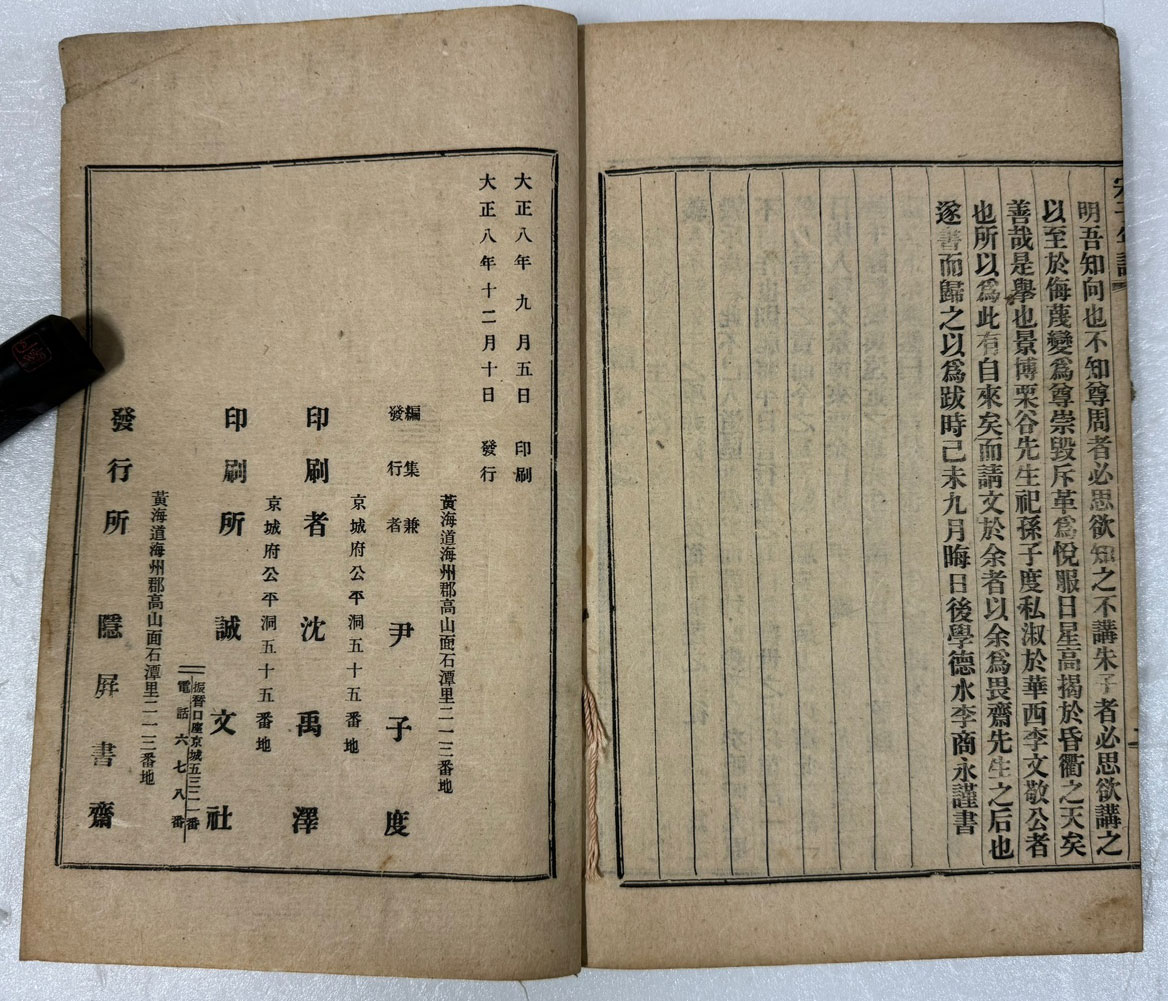 明吾知向也不知尊周者必思欲知之不講朱子者必思欲講之
以至於侮蔑變爲尊崇毀斥革爲悅服日星高揭於昏衢之天矣
善哉是擧也景博栗谷先生祀孫子度私淑於華西李文敬公者
也所以爲此有自來矣而請文於余者以余爲畏齋先生之后也
遂書而歸之以爲跋時己未九月晦日後學德水李商永謹書
大正八年九月五日 印刷
大正八年十二月十日 發行
黃海道海州郡高山面石潭里二一三番地
編集兼發行者 尹子度
京城府公平洞五十五番地
印刷者 沈禹澤
京城府公平洞五十五番地
印刷所 誠文社
振替口座京城五三二一番
電話六七八番
黃海道海州郡高山面石潭里二一三番地
發行所 隱屛書齋